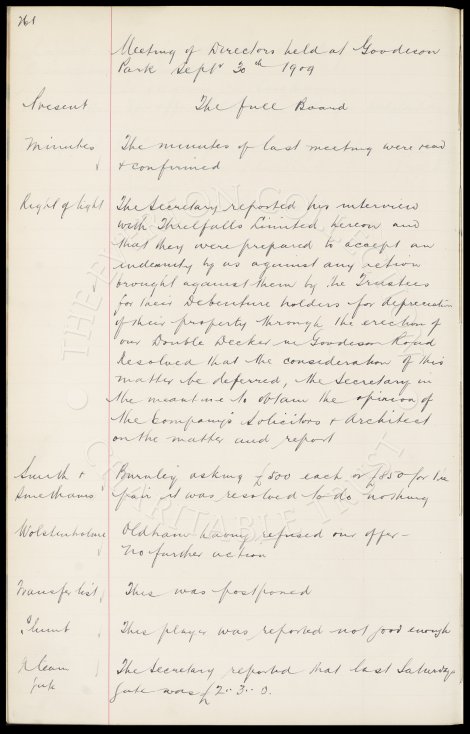 261
Meeting of Directors held at Goodison
Park Septr 30th 1909
Present The full Board
Minutes The minutes of last meeting were read
& confirmed
Right of light The Secretary reported his interview
with Threlfalls Limited hereon and
that they were prepared to accept an
indemnity by us against any action
brought against them by the Trustees
for their Debenture holders for depreciation
of their property through the erection of
our Double Decker in Goodison Road
Resolved that the consideration of this
matter be deferred, the Secretary in
the meantime to obtain the opinion of
the Company's Solicitors & Architect
on the matter and report
Smith & Burnley asking £500 each or £850 for the
Smethams pair it was resolved to do nothing
Wolstenholme Oldham having refused our offer -
No further action
Transfer list This was postponed
This player was reported not good enough
A Team The Secretary reported that last Saturdays
Gate was £2..3..0.
THE EVERTON COLLECTION
CHARITABLE TRUST